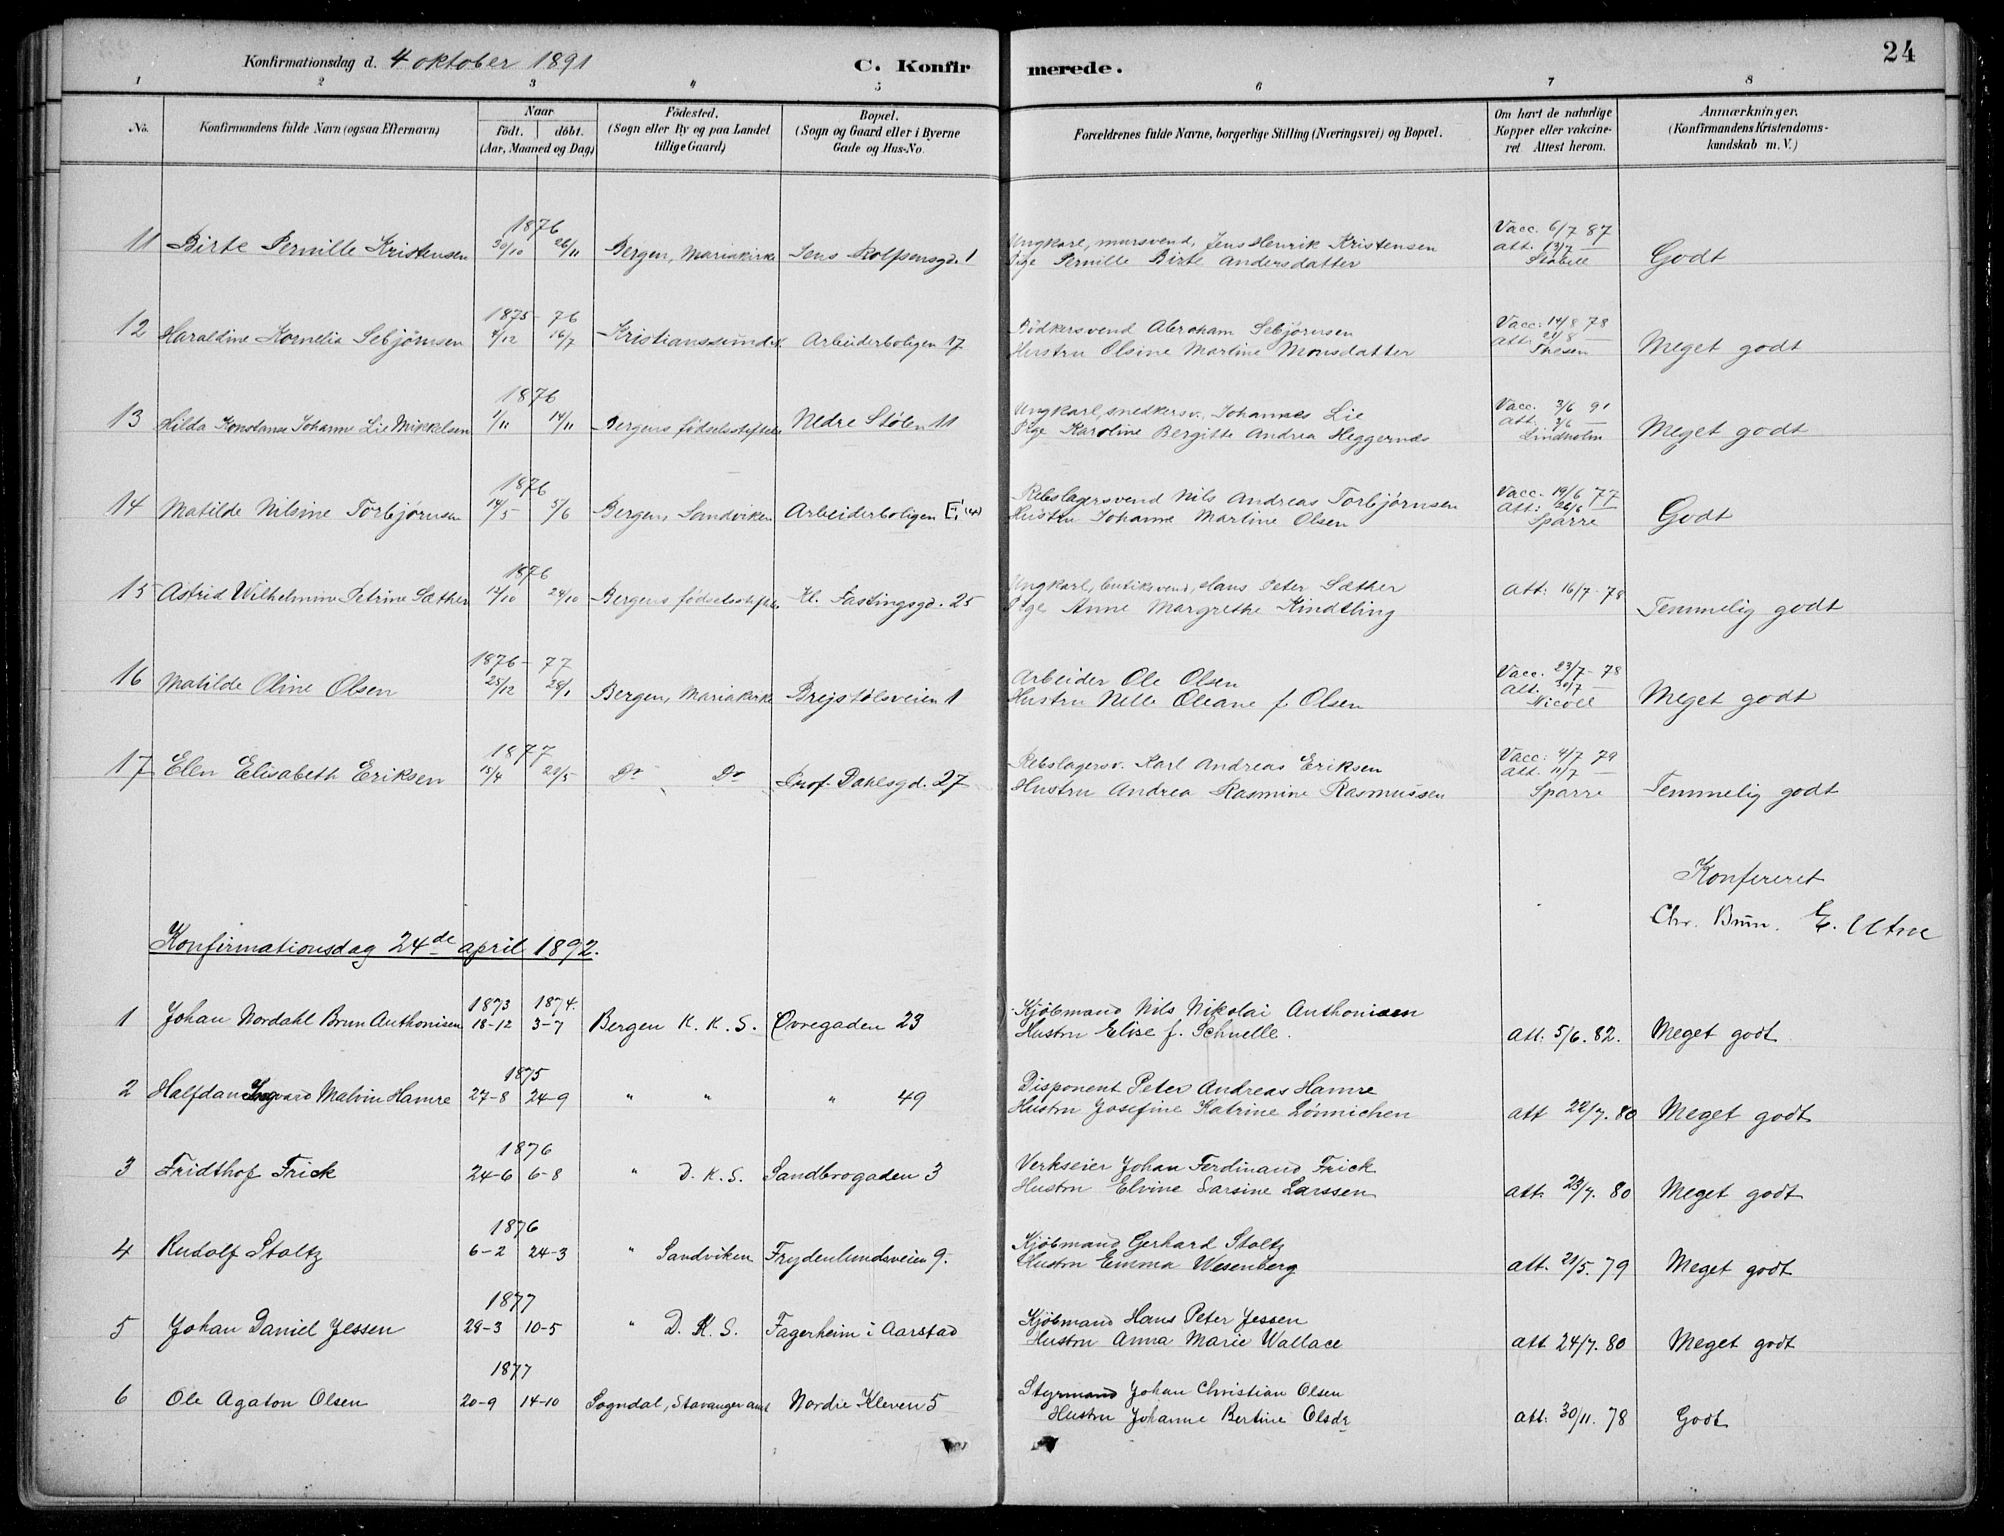 Konfirmationsdag d. 4 oktober 1891
C. Konfir merede.
24
1 2 3 " 5 6 7 8
No.
Konfirmandens fulde Navn (ogsaa Efternavn)
Naar
født. døbt.
(Aar, Maaned og Dag)
Fødested.
(Sogn eller By og paa Landet
tillige Gaard)
Bopæl.
(Sogn og Gaard eller i Byerne
Gade og Hus-No.
Forældrenes fulde Navne, borgerlige Stilling (Næringsvei) og Bopæl.
Om havt de naturlige
Kopper eller vakcine-
ret. Attest herom.
Anmærkninger.
(Konfirmandens Kristendoms-
kundskab m. V.)
1876
11 Birte Pernille Kristensen 30/10 26/11 Bergen, Mariakirke Jens Rolfsensgd. 1
Ungkarl, mursvend, Jens Henrik Kristensen
Pige Pernille Birte Andersdatter
Vacc. 6/7 87
att. 13/7 —
Stabell
Godt
1875- 76
12 Haraldine Kornelia Sebjørnsen 4/12 16/7 Kristianssund Arbeiderboligen 17
Bødkersvend Abraham Sebjørnsen
Hustru Olsine Martine Monsdatter
Vacc. 14/8 78
att. 21/8 —
Thesen
Meget godt
1876
13 Hilda Konstanse Johanne Lie Mikkelsen 1/11 14/11 Bergens fødselsstiftelse Nedre Stølen 11
Ungkarl, snedkersv. Johannes Lie
Pige Karoline Bergitte Andrea Heggernæs
Vacc. 3/6 91
att. 3/6 —
Lindholm
Meget godt
1876
14 Matilde Nilsine Torbjørnsen 14/5 5/6 Bergen, Sandviken Arbeiderboligen E
Rebslagersvend Nils Andreas Torbjørnsen
Hustru Johanne Martine Olsen
Vacc. 19/6 77
Att: 26/6 —
Sparre
Godt
1876
15 Astrid Wilhelmine Petrine Sæther 14/10 24/10 Bergens fødselsstiftelse Kl. Fastingsgd. 25
Ungkarl, butiksvend, Hans Peter Sæther
Pige Anne Margrethe Kindtling
Att: 16/7-78
Temmelig godt
1876- 77
16 Matilde Oline Olsen 25/12 28/1 Bergen, Mariakirke Brejstølsveien 1
Arbeider Ole Olsen
Hustru Nelle Oleane f. Olsen
Vacc. 23/7-78
Att. 30/7 —
Nicoll
Meget godt
1877
17 Elen Elisabeth Eriksen 15/4 21/5 Do Do Prof. Dahlsgd. 27
Rebslagersv. Karl Andreas Eriksen
Hustru Andrea Rasmine Rasmussen
Vacc: 4/7 79
Att. 11/7 —
Sparre
Temmelig godt
Konfereret
Chr. Brun. E. Utne
Konfirmationsdag 24de april 1892.
1873 1874.
1 Johan Nordahl Brun Anthonisen 18-12 3-7 Bergen K. K. S. Øvregaden 23
Kjøbmand Nils Nikolai Anthonisen
Hustru Elise f. Schnelle.
att: 5/6. 82. Meget godt
1875
2 Halfdan Ingvard Malvin Hamre 27-8 24-9 " " " 49
Disponent Peter Andreas Hamre
Hustru Josefine Katrine Lønnichen
att 22/7. 80 Meget godt
1876
3 Fridthof Frick 24-6 6-8 " D. K. S. Sandbrogaden 3
Verkseier Johan Ferdinand Frick
Hustru Elvine Larsine Larssen
att. 23/7. 80 Meget godt
1876
4 Rudolf Stoltz 6-2 24-3 " Sandviken Frydenlundsveien 9.
Kjøbmand Gerhard Stoltz
Hustru Emma Wesenberg
att. 21/5. 79 Meget godt
1877
5 Johan Daniel Jessen 28-3 10-5 " D. K. S. Fagerheim i Aarstad
Kjøbmand Hans Peter Jessen
Hustru Anna Marie Wallace
att 24/7. 80 Meget godt
1877
6 Ole Agaton Olsen 20-9 14-10 Sogndal, Stavanger amt Nordre Kleven 5
Styrmand Johan Christian Olsen
Hustru Johanne Bertine Olsdr
att: 30/11. 78 Godt